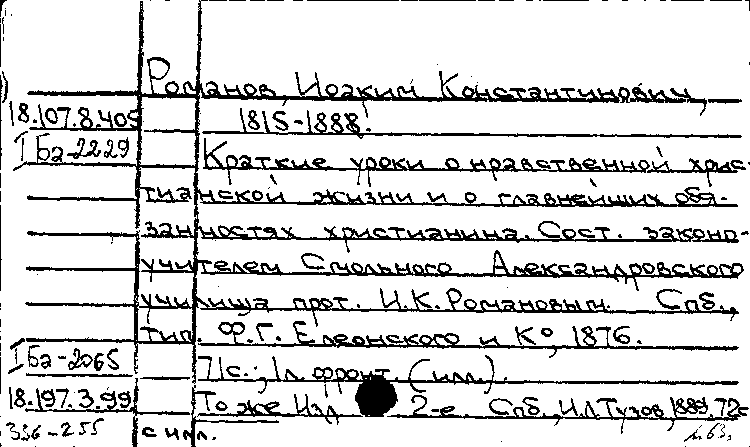 Романов, Иоаким Константинович,
18.107.8.405 1815-1888.
I Ба-2229 Краткие уроки о нравственной хрис-
тианской жизни и о главнейших обя-
занностях христианина. Сост. законо-
учителем Смольного Александровского
училища прот. И.К. Романовым. Спб.,
тип. Ф.Г. Елеонского и К°, 1876.
I Ба-2065 71с.; 1л. фронт. (илл.).
18.197.3.99 То же Изд. 2-е. Спб., И.Л.Тузов, 1889. 72с
336-255 с илл.